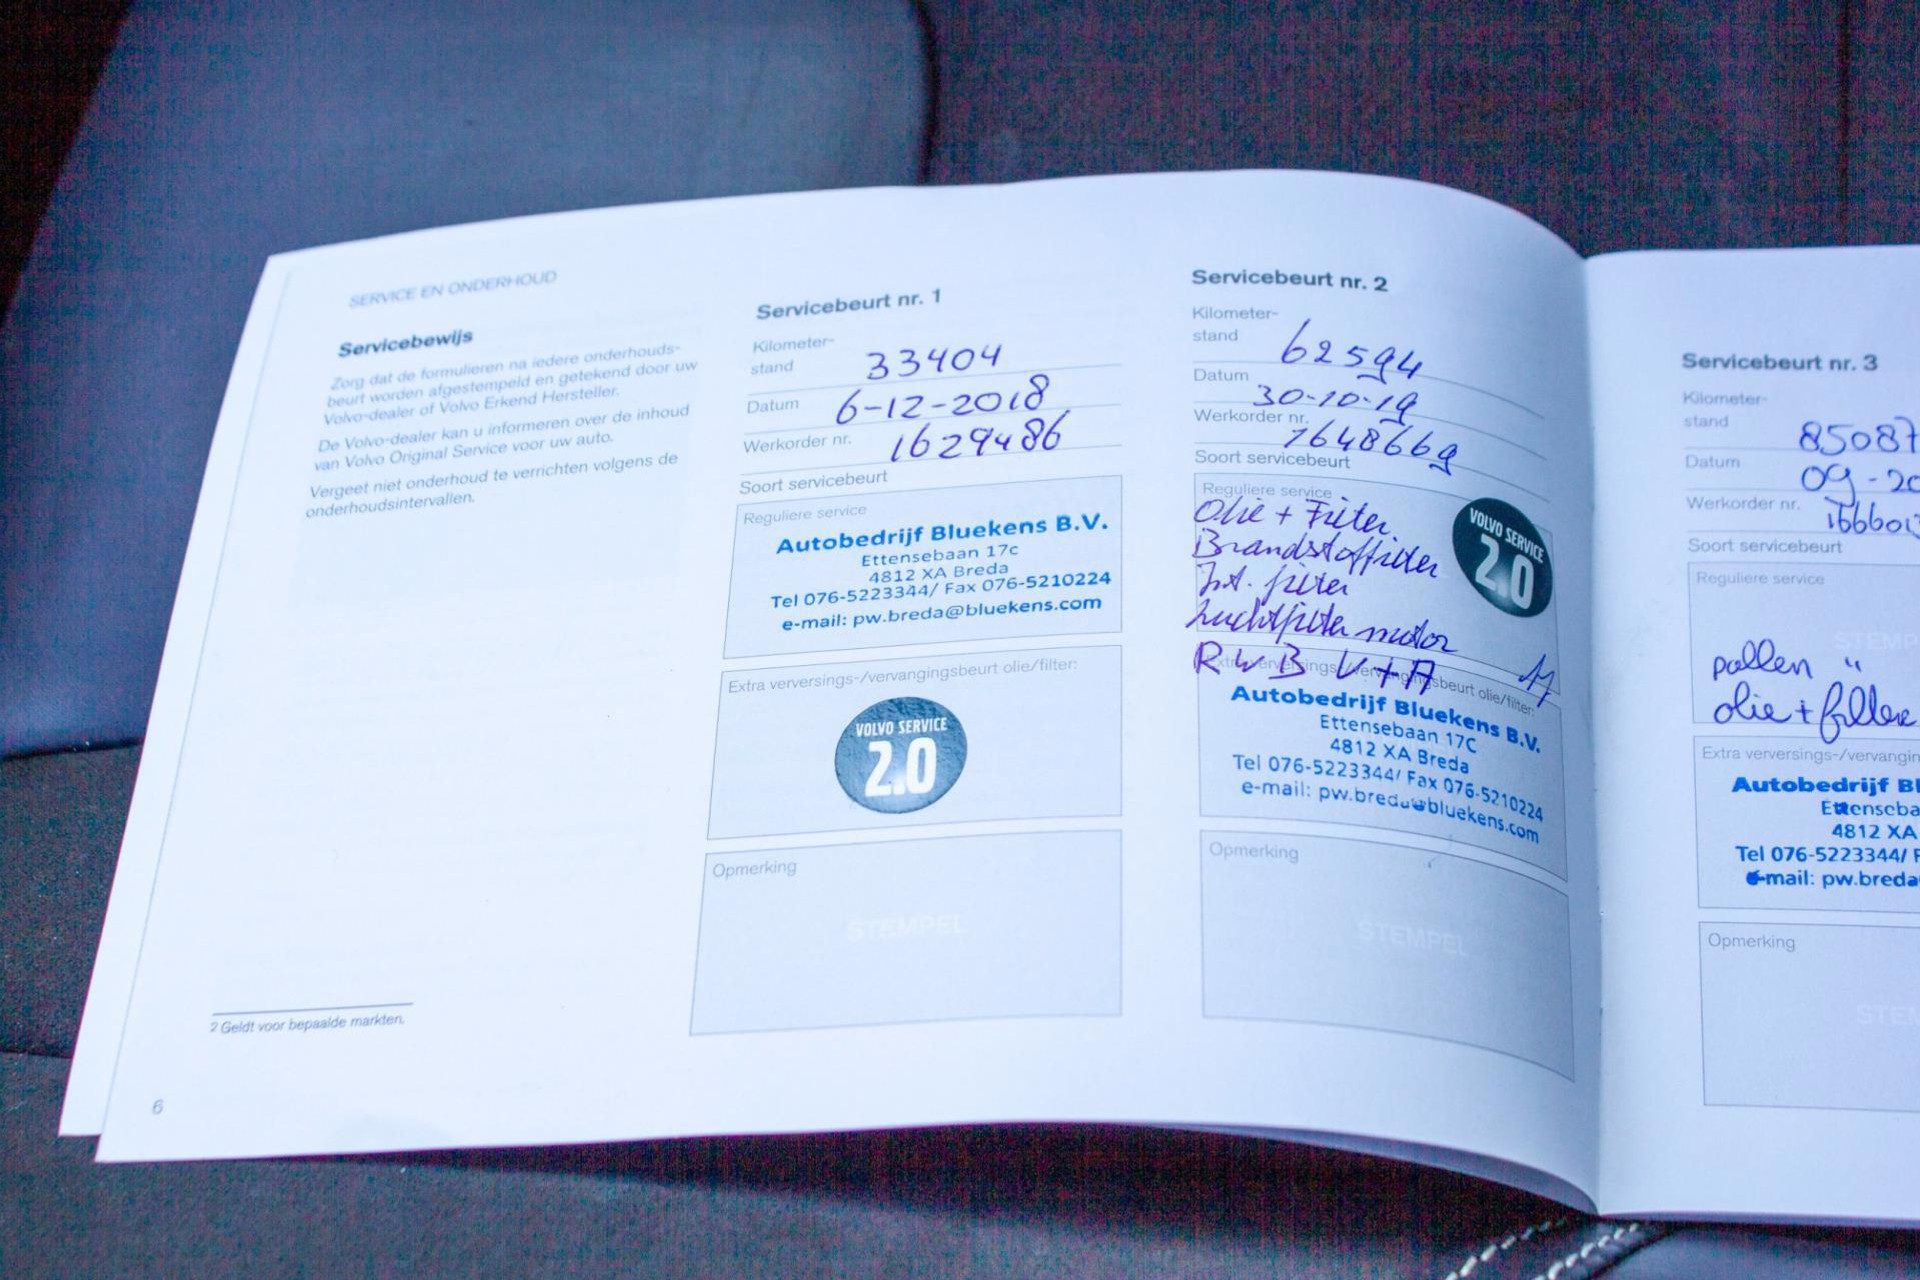 SERVICE EN ONDERHOUD
Servicebewijs
Zorg dat de formulieren na iedere onderhouds-
beurt worden afgestempeld en getekend door uw
Volvo-dealer of Volvo Erkend Hersteller.
De Volvo-dealer kan u informeren over de inhoud
van Volvo Original Service voor uw auto.
Vergeet niet onderhoud te verrichten volgens de
onderhoudsintervallen.
2 Geldt voor bepaalde markten.
6
Servicebeurt nr. 1
Kilometer-
stand 33404
Datum 6-12-2018
Werkorder nr. 1629486
Soort servicebeurt
Reguliere service
Autobedrijf Bluekens B.V.
Ettensebaan 17c
4812 XA Breda
Tel 076-5223344/ Fax 076-5210224
e-mail: pw.breda@bluekens.com
Extra verversings-/vervangingsbeurt olie/filter:
VOLVO SERVICE
2.0
Opmerking
STEMPEL
Servicebeurt nr. 2
Kilometer-
stand 62594
Datum 30-10-19
Werkorder nr. 1648669
Soort servicebeurt
Reguliere service
Olie + Filter
Brandstoffilter
Int. filter
Luchtfilter motor
RWB V+A
VOLVO SERVICE
2.0
Extra verversings-/vervangingsbeurt olie/filter:
Autobedrijf Bluekens B.V.
Ettensebaan 17C
4812 XA Breda
Tel 076-5223344/ Fax 076-5210224
e-mail: pw.breda@bluekens.com
Opmerking
STEMPEL
Servicebeurt nr. 3
Kilometer-
stand 85087
Datum 09-20
Werkorder nr.
Soort servicebeurt
Reguliere service
STEMP
pollen "
olie + filter
Extra verversings-/vervangin
Autobedrijf Bl
Ettenseba
4812 XA
Tel 076-5223344/ F
e-mail: pw.breda
Opmerking
STE